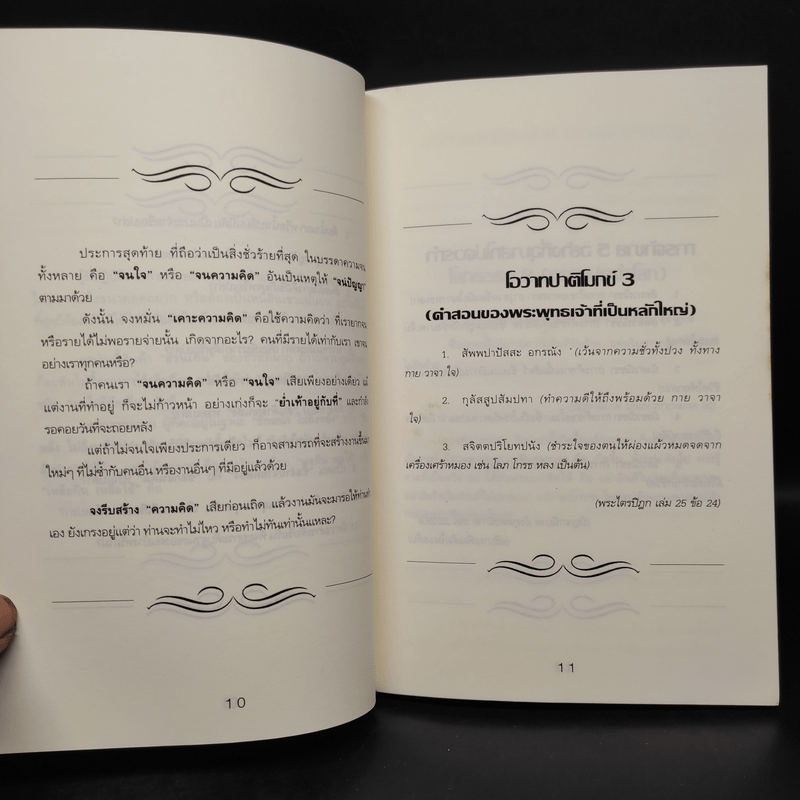 ประการสุดท้าย ที่ถือว่าเป็นสิ่งชั่วร้ายที่สุด ในบรรดาความจน
ทั้งหลาย คือ “จนใจ” หรือ “จนความคิด” อันเป็นเหตุให้ “จนปัญญา”
ตามมาด้วย
ดังนั้น จงหมั่น “เคาะความคิด” คือใช้ความคิดว่า ที่เรายากจน
หรือรายได้ไม่พอรายจ่ายนั้น เกิดจากอะไร? คนที่มีรายได้เท่ากับเรา เขาจน
อย่างเราทุกคนหรือ?
ถ้าคนเรา “จนความคิด” หรือ “จนใจ” เสียเพียงอย่างเดียว
แต่งานที่ทำอยู่ ก็จะไม่ก้าวหน้า อย่างเก่งก็จะ “ย่ำเท้าอยู่กับที่” และกำลัง
รอคอยวันที่จะถอยหลัง
แต่ถ้าไม่จนใจเพียงประการเดียว ก็อาจสามารถที่จะสร้างงานขึ้นมา
ใหม่ๆ ที่ไม่ซ้ำกับคนอื่น หรืองานอื่นๆ ที่มีอยู่แล้วด้วย
จงรีบสร้าง “ความคิด” เสียก่อนเถิด แล้วงานมันจะมารอให้ท่านทำ
เอง ยังเกรงอยู่แต่ว่า ท่านจะทำไม่ไหว หรือทำไม่ทันเท่านั้นแหละ?
10
โอวาทปาติโมกข์ 3
(คำสอนของพระพุทธเจ้าที่เป็นหลักใหญ่)
1. สัพพปาปัสสะ อกรณัง (เว้นจากความชั่วทั้งปวง ทั้งทาง
กาย วาจา ใจ)
2. กุสัลสสูปสัมปทา (ทำความดีให้ถึงพร้อมด้วย กาย วาจา
ใจ)
3. สจิตตปริโยทปนัง (ชำระใจของตนให้ผ่องแผ้วหมดจดจาก
เครื่องเศร้าหมอง เช่น โลภ โกรธ หลง เป็นต้น)
(พระไตรปิฎก เล่ม 25 ข้อ 24)
11